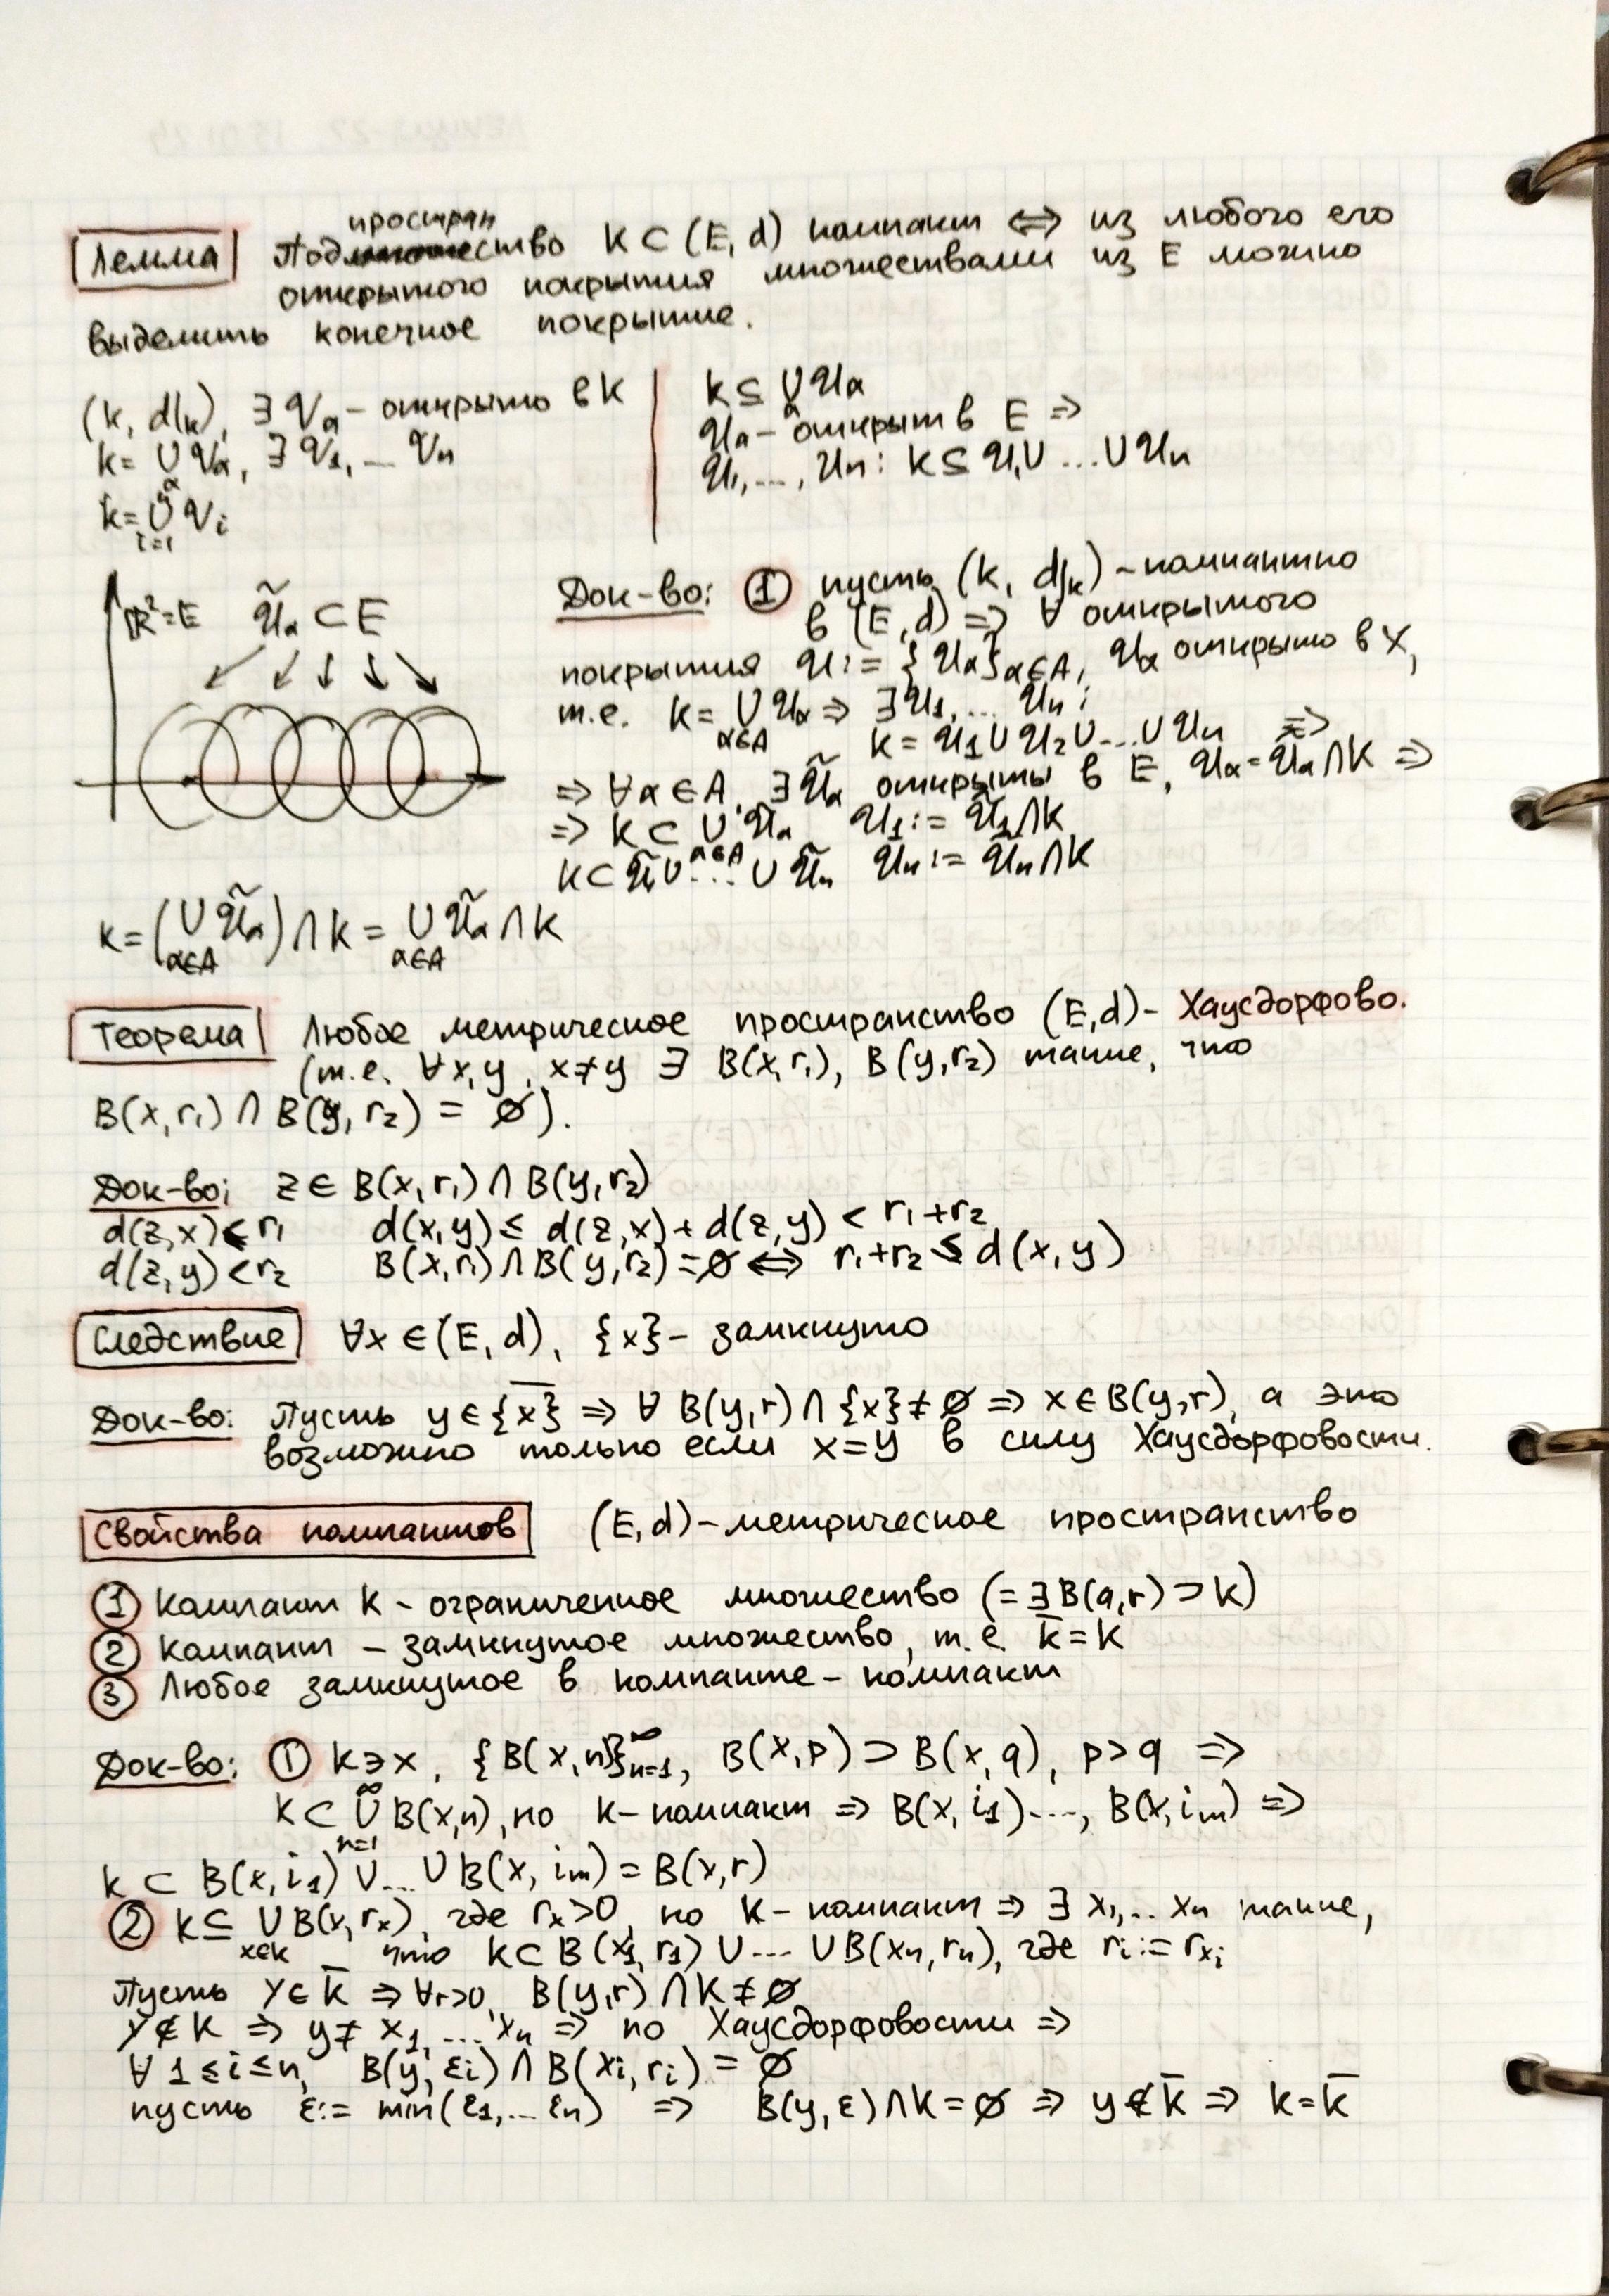 простран
Лемма Подмножество K ⊂ (E, d) компакт ⟺ из любого его
открытого покрытия множествами из E можно
выделить конечное покрытие.
(K, d|ₖ), ∃ 𝒱α – открыто в K
K = ∪ 𝒱α, ∃ 𝒱₁, ... 𝒱n
α
K = ∪ 𝒱i
i=1
K ⊆ ∪ 𝒰α
α
𝒰α – открыт в E ⇒
𝒰₁, ..., 𝒰n : K ⊆ 𝒰₁ ∪ ... ∪ 𝒰n
ℝ² = E 𝒰̃α ⊂ E
Док-во: ① пусть (K, d|ₖ) – компактно
в (E, d) ⇒ ∀ открытого
покрытия 𝒰 := {𝒰α}α∈A, 𝒰α открыто в X,
т.е. K = ∪ 𝒰α ⇒ ∃ 𝒰₁, ... 𝒰n :
α∈A
K = 𝒰₁ ∪ 𝒰₂ ∪ ... ∪ 𝒰n ⇒
⇒ ∀α ∈ A, ∃ 𝒰̃α открыты в E, 𝒰α = 𝒰̃α ∩ K ⇒
⇒ K ⊂ ∪ 𝒰̃α 𝒰₁ := 𝒰̃₁ ∩ K
α∈A
K ⊂ 𝒰̃₁ ∪ ... ∪ 𝒰̃n 𝒰n := 𝒰̃n ∩ K
K = (∪ 𝒰̃α) ∩ K = ∪ 𝒰̃α ∩ K
α∈A α∈A
Теорема Любое метрическое пространство (E, d) – Хаусдорфово.
(т.е. ∀x, y, x ≠ y ∃ B(x, r₁), B(y, r₂) такие, что
B(x, r₁) ∩ B(y, r₂) = ∅).
Док-во: z ∈ B(x, r₁) ∩ B(y, r₂)
d(z, x) < r₁ d(x, y) ≤ d(z, x) + d(z, y) < r₁ + r₂
d(z, y) < r₂ B(x, r₁) ∩ B(y, r₂) = ∅ ⟺ r₁ + r₂ ≤ d(x, y)
Следствие ∀x ∈ (E, d), {x} – замкнуто
Док-во: Пусть y ∈ {x̅} ⇒ ∀ B(y, r) ∩ {x} ≠ ∅ ⇒ x ∈ B(y, r), а это
возможно только если x = y в силу Хаусдорфовости.
Свойства компактов (E, d) – метрическое пространство
① Компакт K – ограниченное множество (= ∃ B(a, r) ⊃ K)
② Компакт – замкнутое множество, т.е. K̅ = K
③ Любое замкнутое в компакте – компакт
Док-во: ① K ∋ x, {B(x, n)}ₙ₌₁^∞, B(x, p) ⊃ B(x, q), p > q ⇒
K ⊂ ∪ B(x, n), но K – компакт ⇒ B(x, i₁) ..., B(x, iₘ) ⇒
n=1
K ⊂ B(x, i₁) ∪ ... ∪ B(x, iₘ) = B(x, r)
② K ⊆ ∪ B(x, rₓ), где rₓ > 0, но K – компакт ⇒ ∃ x₁, ... xₙ такие,
x∈K что K ⊂ B(x₁, r₁) ∪ ... ∪ B(xₙ, rₙ), где rᵢ := rₓᵢ
Пусть y ∈ K̅ ⇒ ∀r>0, B(y, r) ∩ K ≠ ∅
y ∉ K ⇒ y ≠ x₁, ... xₙ ⇒ по Хаусдорфовости ⇒
∀ 1 ≤ i ≤ n, B(y, εᵢ) ∩ B(xᵢ, rᵢ) = ∅
пусть ε := min(ε₁, ... εₙ) ⇒ B(y, ε) ∩ K = ∅ ⇒ y ∉ K̅ ⇒ K = K̅